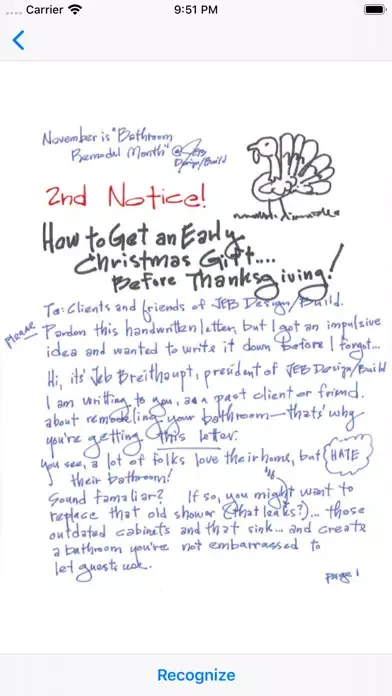 Carrier
9:51 PM
November is "Bathroom
Remodel Month" @ JEB
Design/Build
2nd Notice!
How to Get an Early
Christmas Gift....
Before Thanksgiving!
To: Clients and friends of JEB Design/Build.
Please
Pardon this handwritten letter, but I got an impulsive
idea and wanted to write it down before I forgot...
Hi, its' Jeb Breithaupt, president of JEB Design/Build
I am writing to you, as a past client or friend.
about remodeling your bathroom—thats' why
you're getting this letter.
You see, a lot of folks love their home, but HATE
their bathroom!
Sound familiar? If so, you might want to
replace that old shower (that leaks?)... those
outdated cabinets and that sink... and create
a bathroom you're not embarrassed to
let guests use.
page 1
Recognize